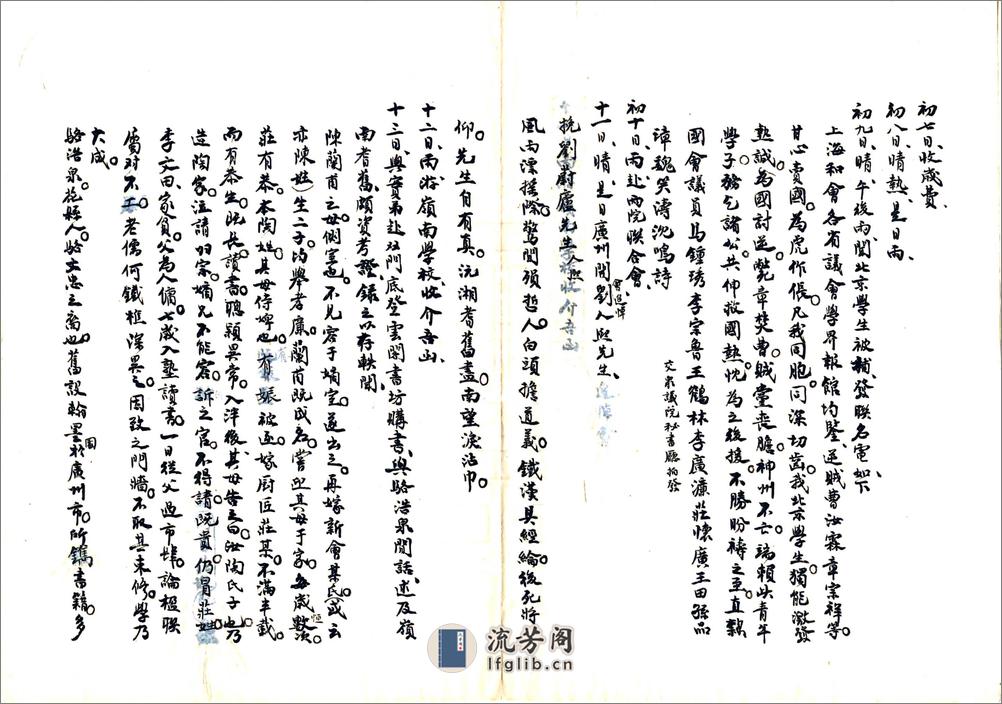 初七日、收歲費、
初八日、晴熱、是日雨、
初九日、晴、午後雨、聞北京學生被輔、發聯名電如下、
上海和會各省議會學界報館均鑒、逆賊曹汝霖章宗祥等。
甘心賣國。為虎作倀。凡我同胞。同深切齒。我北京學生。獨能激發
熱誠。為國討逆。斃章焚曹。賊黨喪膽。神州不亡。端賴此青年
學子。務乞諸公。共伸救國熱忱。為之後援。不勝盼禱之至。直隸
國會議員馬鍾琇李宗魯王鶴林李廣濂莊懷廣王田孫品
璋魏笑濤沈鳴詩
交衆議院秘書廳拍發
初十日、雨、赴兩院聯合會、
十一日、晴、是日廣州開劉人熙先生會追悼
挽劉蔚廬先生人熙
風雨漂搖際。驚聞殞哲人。白頭擔道義。鐵漢具經綸。後死將
仰。先生自有真。沅湘耆舊盡。南望淚沾巾。
十二日、雨、游嶺南學校、收介吾函、
十三日、與賓甫赴雙門底登雲閣書坊購書、與駱浩泉閒話、述及嶺
南耆舊、頗資考證、錄之以存軼聞、
陳蘭甫之母側室也。不見容于嫡室。遂出之。再嫁新會某氏(或云
亦陳姓)生二子。均舉孝廉。蘭甫既成名。嘗迎其母于家。每歲恒數次。
莊有恭本陶姓。其母侍婢也。有娠。被逐。嫁廚匠莊某。不滿半載。
而有恭生。比長讀書。聰穎異常。入泮後。其母告之曰。汝陶氏子也。乃
造陶家。泣請歸宗。嫡兄不能容。訴之官。不得請。既貴。仍冒莊姓。
李文田。家貧。父為人傭。七歲入塾讀書。一日從父過市肆。論楹聯
屬對不工。老儒何鐵樵深異之。因致之門牆。不取其束修。學乃
大成。
駱浩泉花縣人。駱文忠之裔也。舊設翰墨園於廣州市。所鐫書籍。多
流芳阁
lfglib.cn